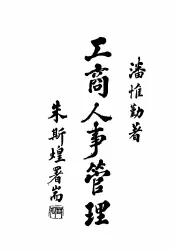 潘惟勤著
工商人事管理
朱斯煌署耑